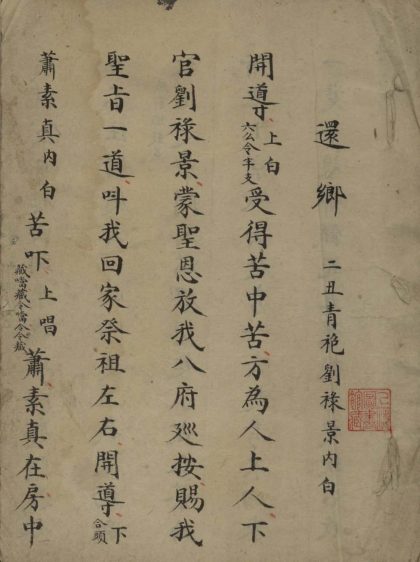 還鄉 二丑青袍劉祿景內白
開導 上白 六公令半支 受得苦中苦方為人上人下
官劉祿景蒙聖恩放我八府廵按賜我
聖旨一道呌我回家祭祖左右開導 下 合頭
蕭素真內白 苦吓 上唱 蕭素真在房中